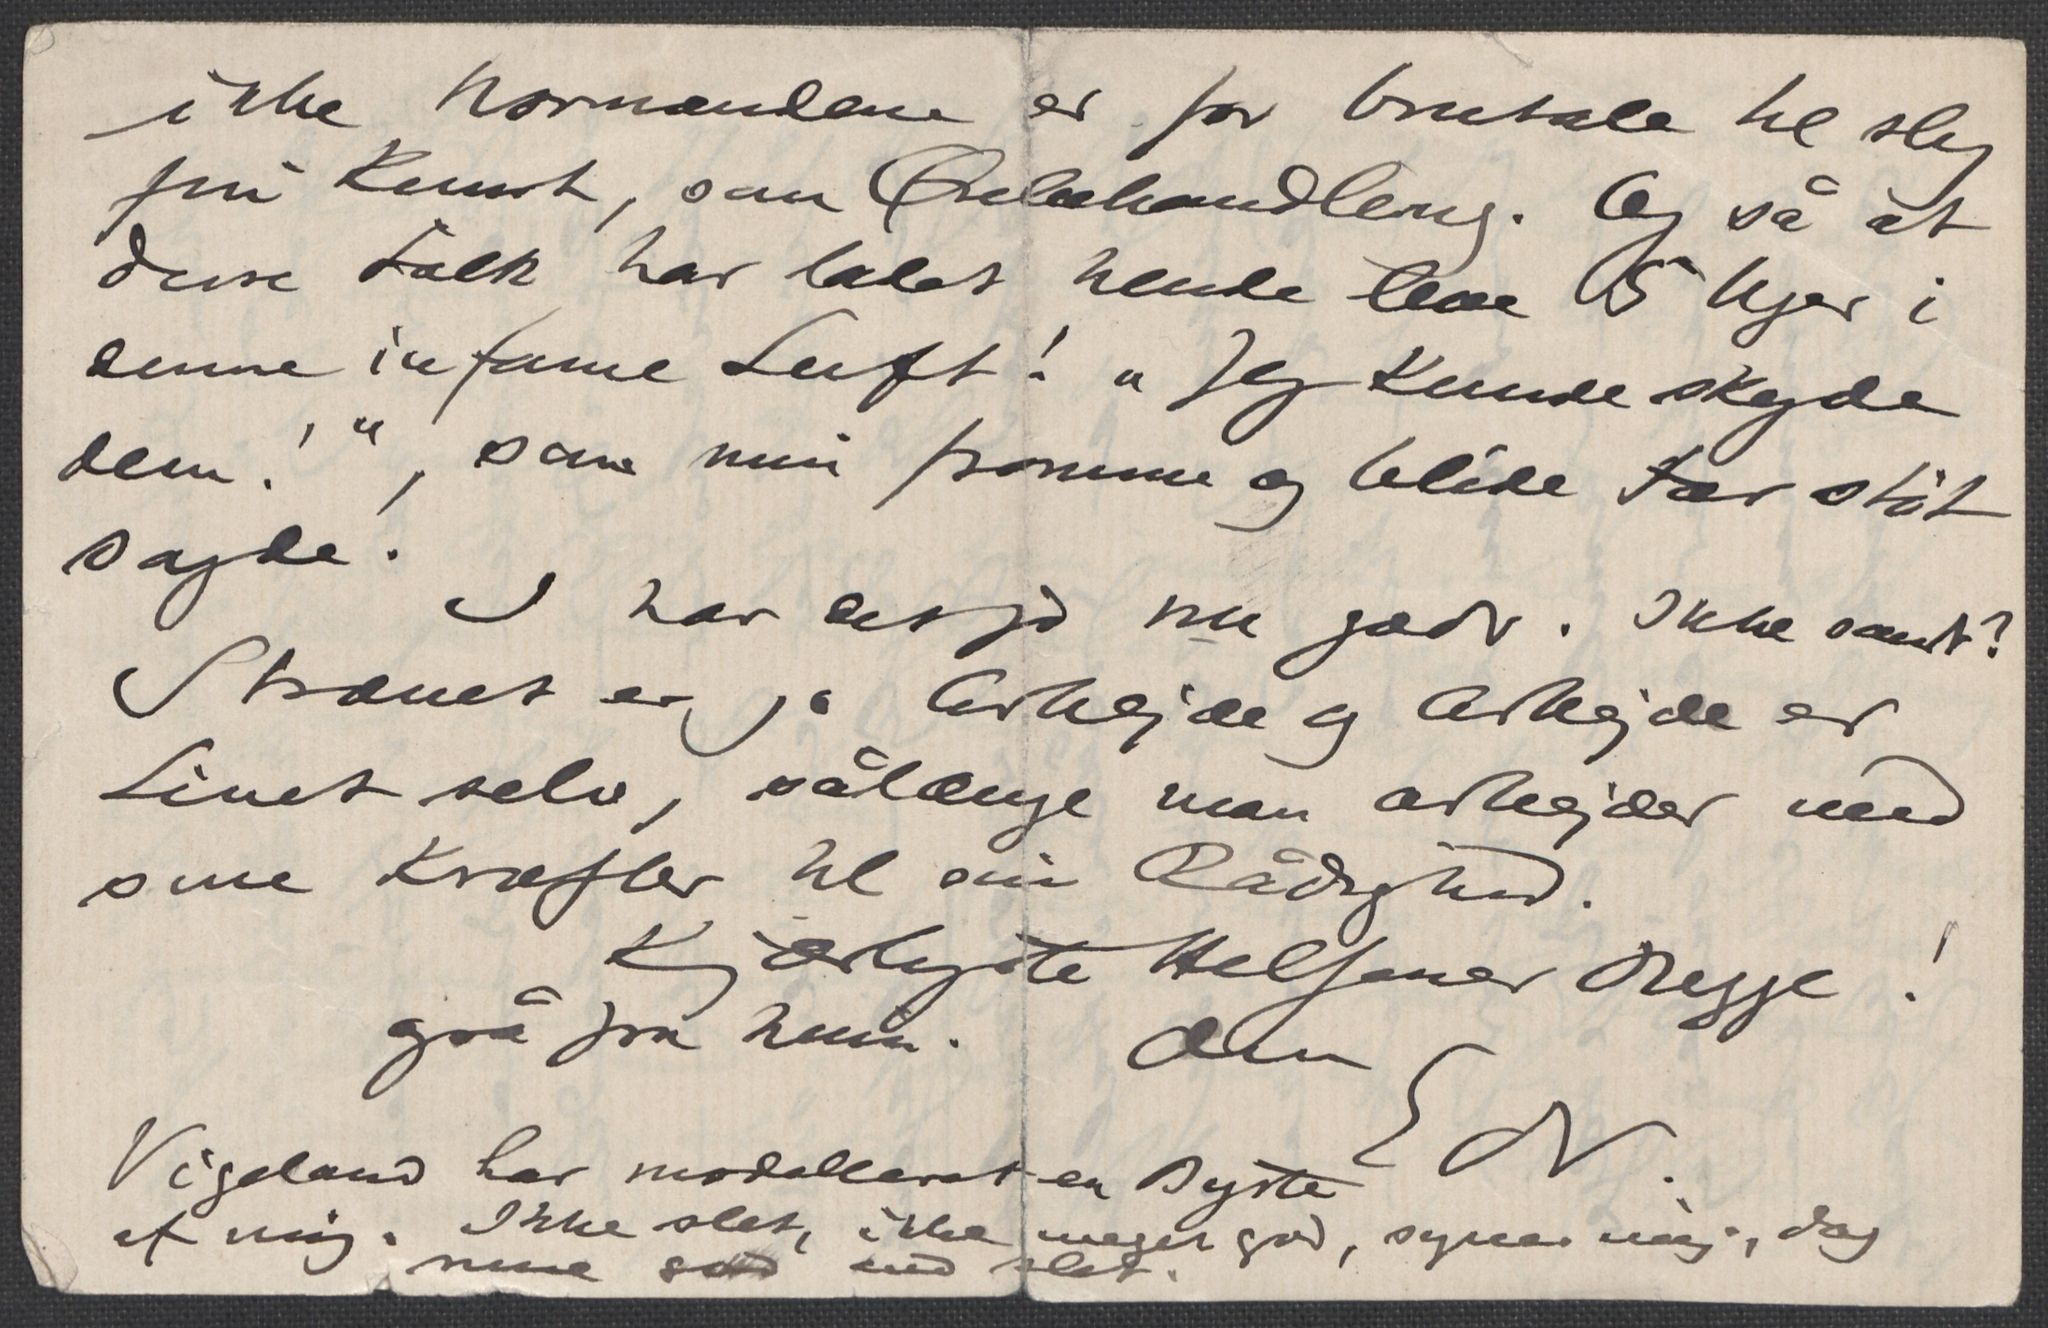 ikke Normændene er for brutale til slig
fin Kunst, som Ørebehandling. Og så at
disse Folk har ladet hende leve 5 Uger i
denne infame Luft! „Jeg kunde skyde
dem!“, som min fromme og blide Far støt
sagde.
I har det jo nu godt. Ikke sandt?
Strævet er jo Arbejde og Arbejde er
Livet selv, sålænge man arbejder med
sine Kræfter til sin Rådighed.
Kjærligste Hilsener Begge!
også fra Nina. Din
EN.
Vigeland har modelleret en Byste
af mig. Ikke slet, ikke meget god, synes mig, dog
mere god end slet.